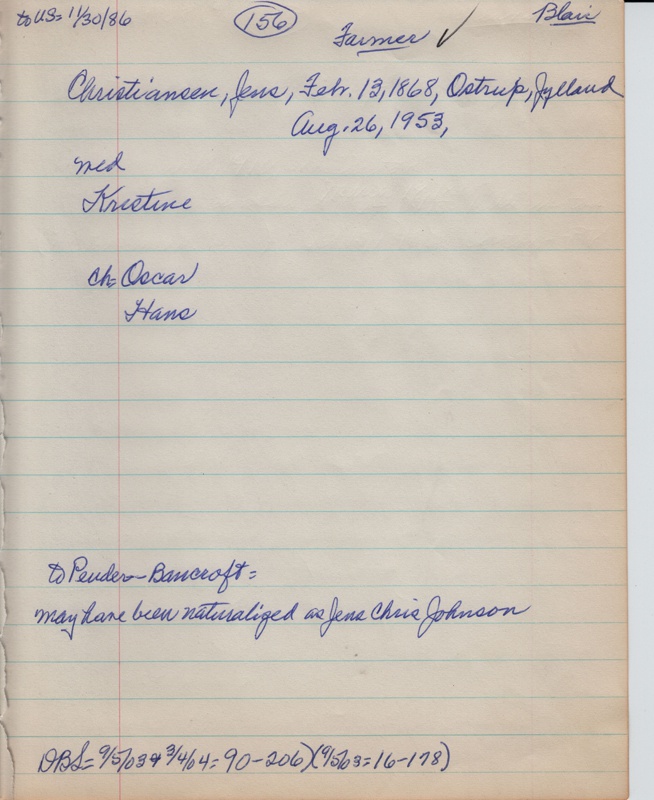 to US= 11/30/86 (156) Blair
Farmer ✓
Christiansen, Jens, Feb. 13, 1868, Ostrup, Jylland
Aug. 26, 1953,
med
Kristine
ch= Oscar
Hans
to Pender-Bancroft=
may have been naturalized as Jens Chris Johnson
DBS= 9/5/03 & 3/4/04 = 90-206) (9/5/03 = 16-178)